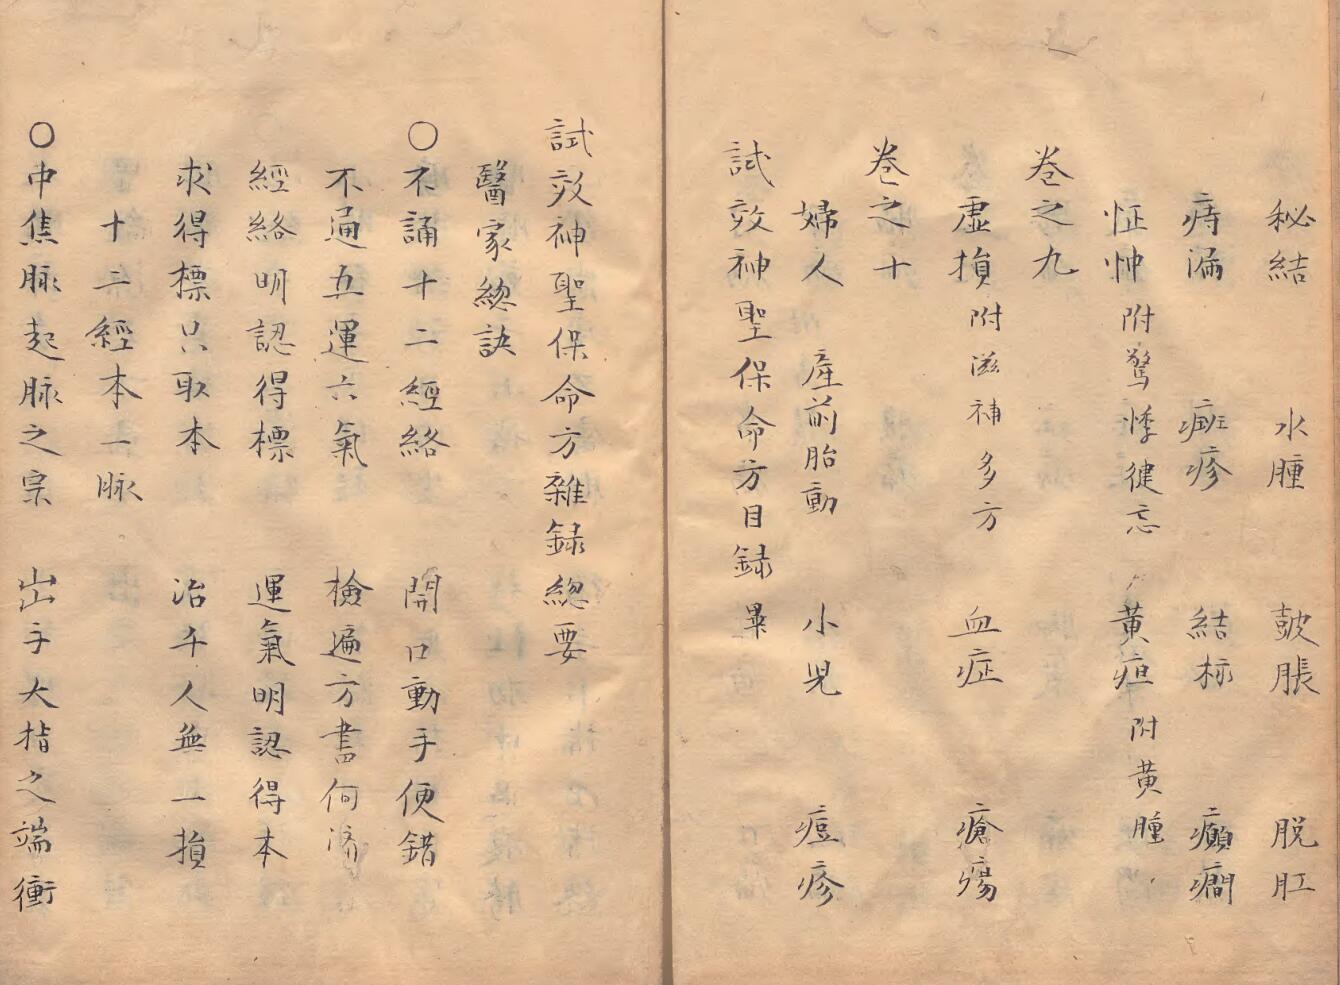 秘結 水腫 鼓脹 脱肛
痔漏 癍疹 結核 癲癇
怔忡 附驚悸健忘 黄疸 附黄腫
卷之九
虛損 附滋補多方 血症 瘡瘍
卷之十
婦人 產前胎動 小児 痘疹
試效神聖保命方目録 畢
試效神聖保命方雜録 総要
醫家総訣
○不誦十二經絡 開口動手便錯
不通五運六氣 檢遍方書何濟
經絡明認得標 運氣明認得本
求得標只取本 治千人無一損
十二經本一脉
○中焦脉起脉之宗 出手大指之端衝